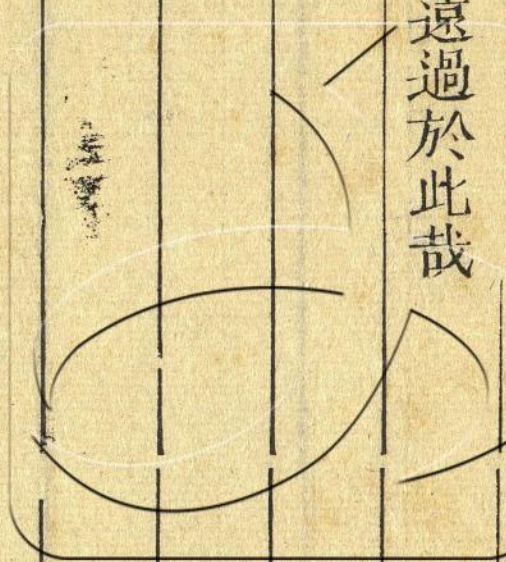 遠過於此哉